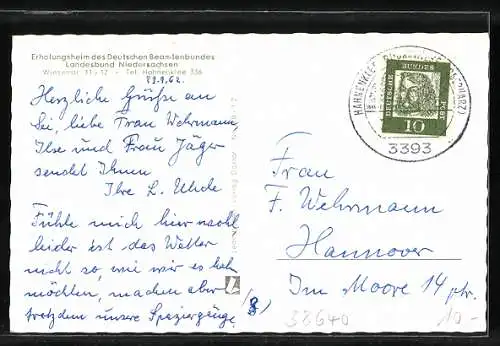 Erholungsheim des Deutschen Beamtenbundes
Landesbund Niedersachsen
Wiesenstr. 11 u 12 - Tel. Hahnenklee 336
Herzliche Grüße an
Sei, liebe Frau Wehrmann
Ilse und Frau Jäger
sendet Ihnen
Ihre L. Uhde
Fühle mich hier wohl
leider ist das Wetter
nicht so, wie wir es hab
möchten, machen aber
trotzdem unsere Spaziergänge.
HAHNENKLEE
DEUTSCHE BUNDESPOST
10
3393
Frau
F. Wehrmann
Hannover
Im Moore 14 ptr.
38640
10.-